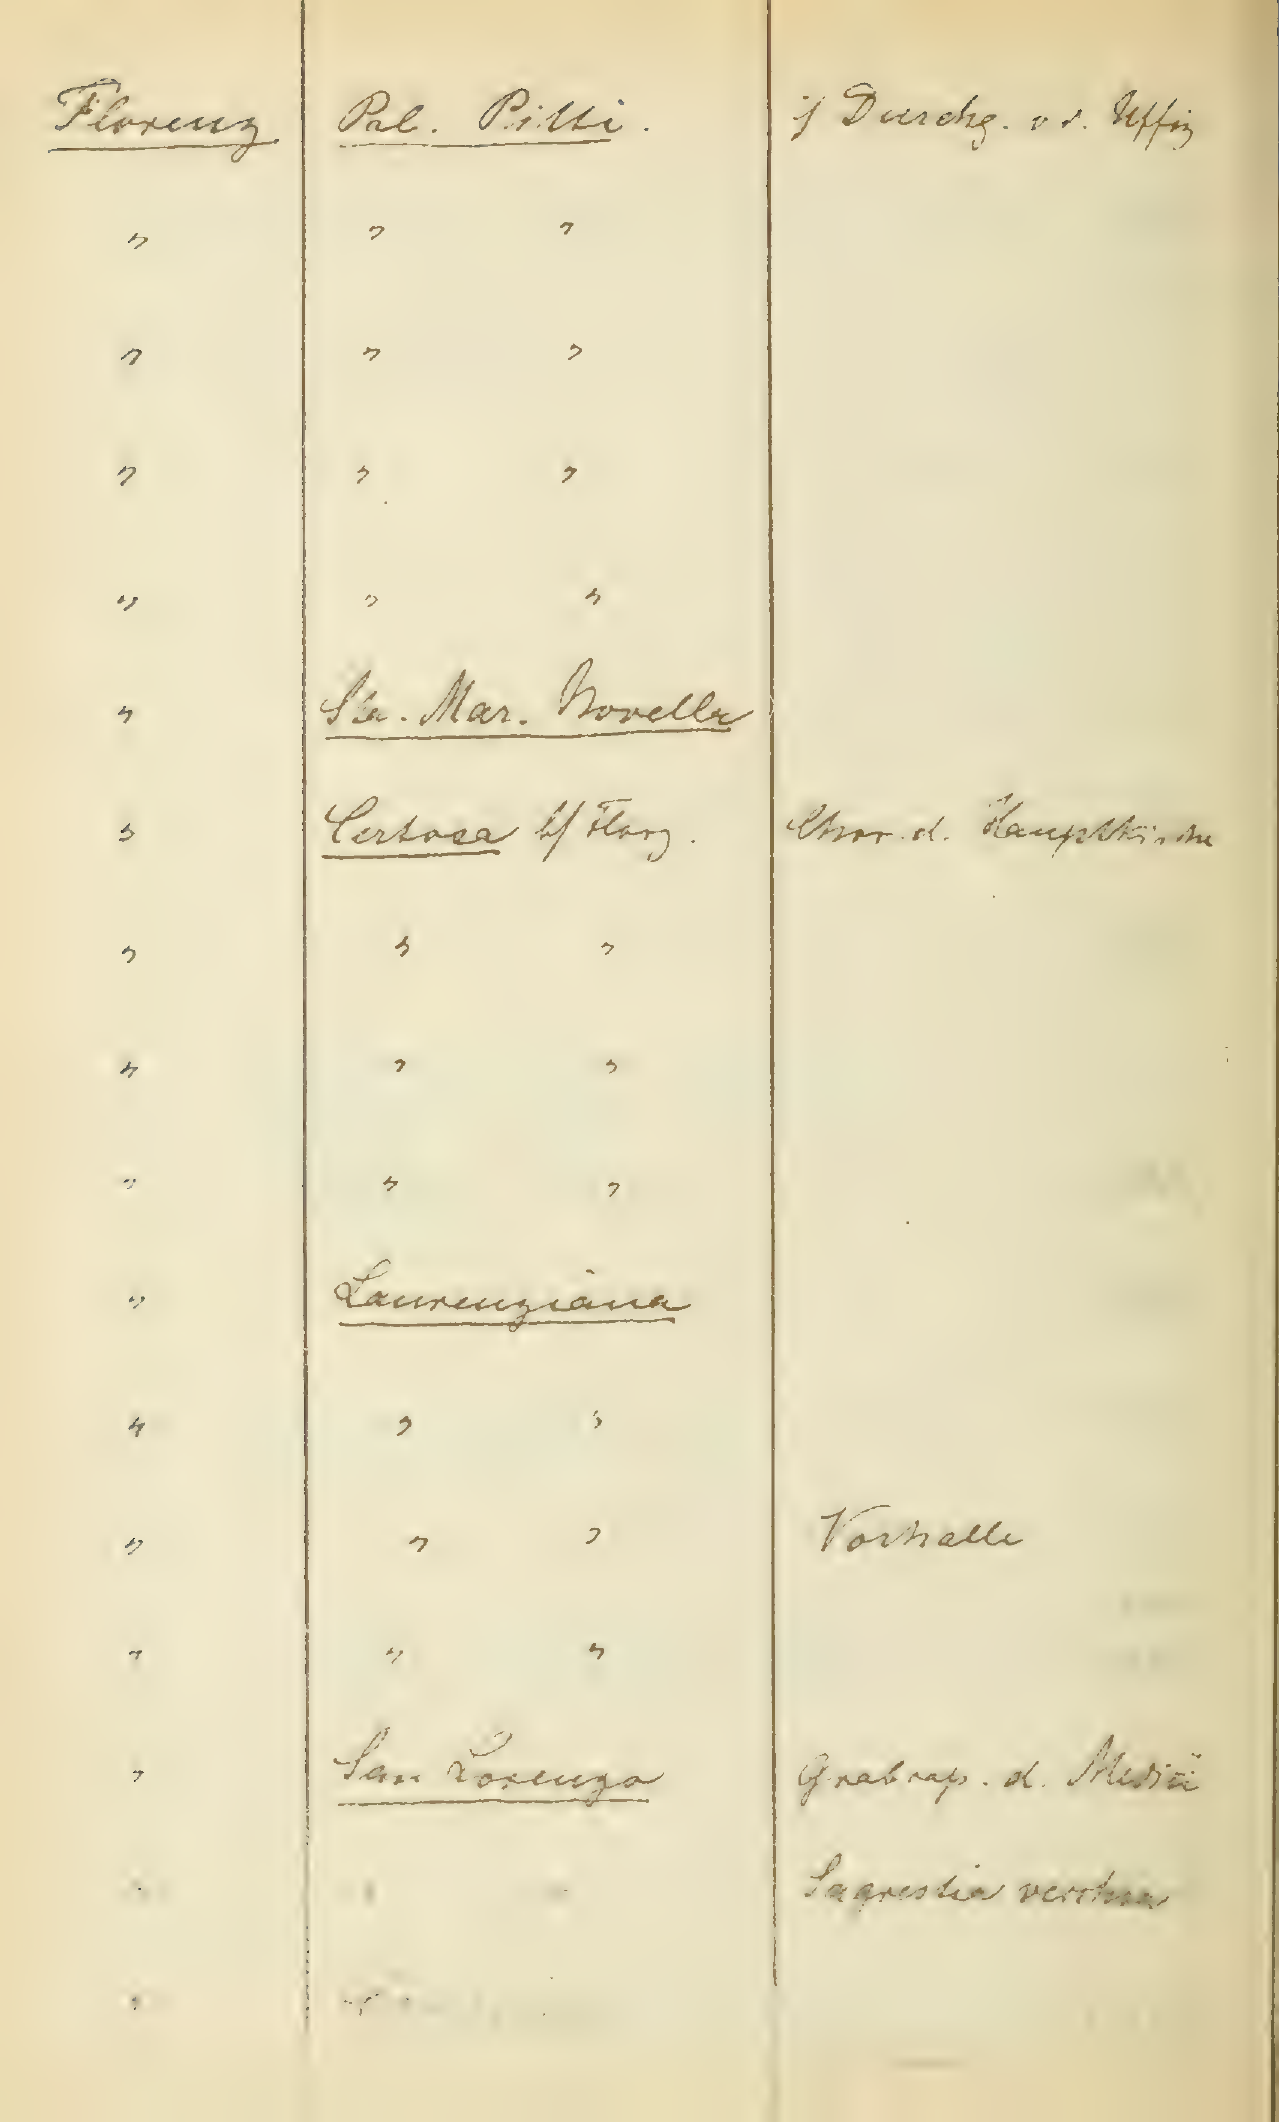 Florenz Pal. Pitti. i/ Durchg. v. d. Uffiz
" " "
" " "
" " "
" " "
" Sta. Mar. Novella
" Certosa b/ Florz. Chor. d. Hauptkirche
" " "
" " "
" " "
" Laurenziana
" " "
" " " Vorhalle
" " "
" San Lorenzo Grabcap. d. Medici
Sagrestia vecchia